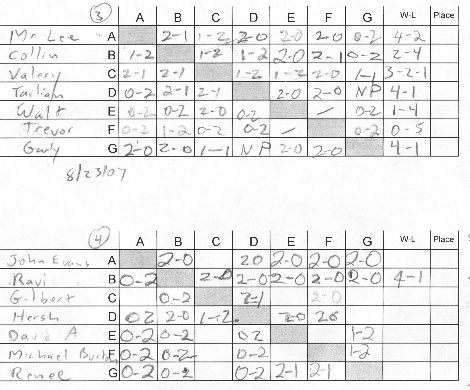 3 A B C D E F G W-L Place
Mr Lee A 2-1 1-2 2-0 2-0 2-0 0-2 4-2
Collin B 1-2 1-2 1-2 2-0 2-1 0-2 2-4
Valery C 2-1 2-1 1-2 1-2 2-0 1-1 3-2-1
D 0-2 2-1 2-1 2-0 2-0 NP 4-1
Walt E 0-2 0-2 2-0 0-2 / 0-2 1-4
Trevor F 0-2 1-2 0-2 0-2 / 0-2 0-5
G 2-0 2-0 1-1 NP 2-0 2-0 4-1
8/23/07
4 A B C D E F G W-L Place
John Evans A 2-0 20 2-0 2-0 2-0
Ravi B 0-2 2-0 2-0 2-0 2-0 2-0 4-1
Gilbert C 0-2 2-1 2-0
Hersh D 02 2-0 1-2 20 20
David A E 0-2 0-2 02 1-2
Michael F 0-2 0-2 0-2 1-2
Renee G 0-2 0-2 0-2 2-1 2-1